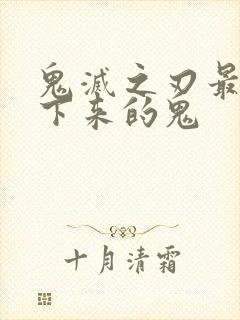 鬼滅之刃最
下来的鬼
十月清霜